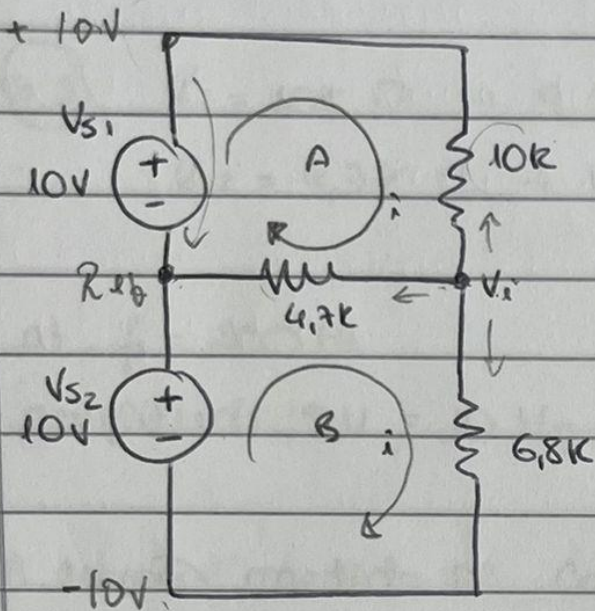 + 10V
Vs1
+
10V
-
A
10k
i
Ref
4,7k
Vi
Vs2
+
10V
-
B
i
6,8K
-10V